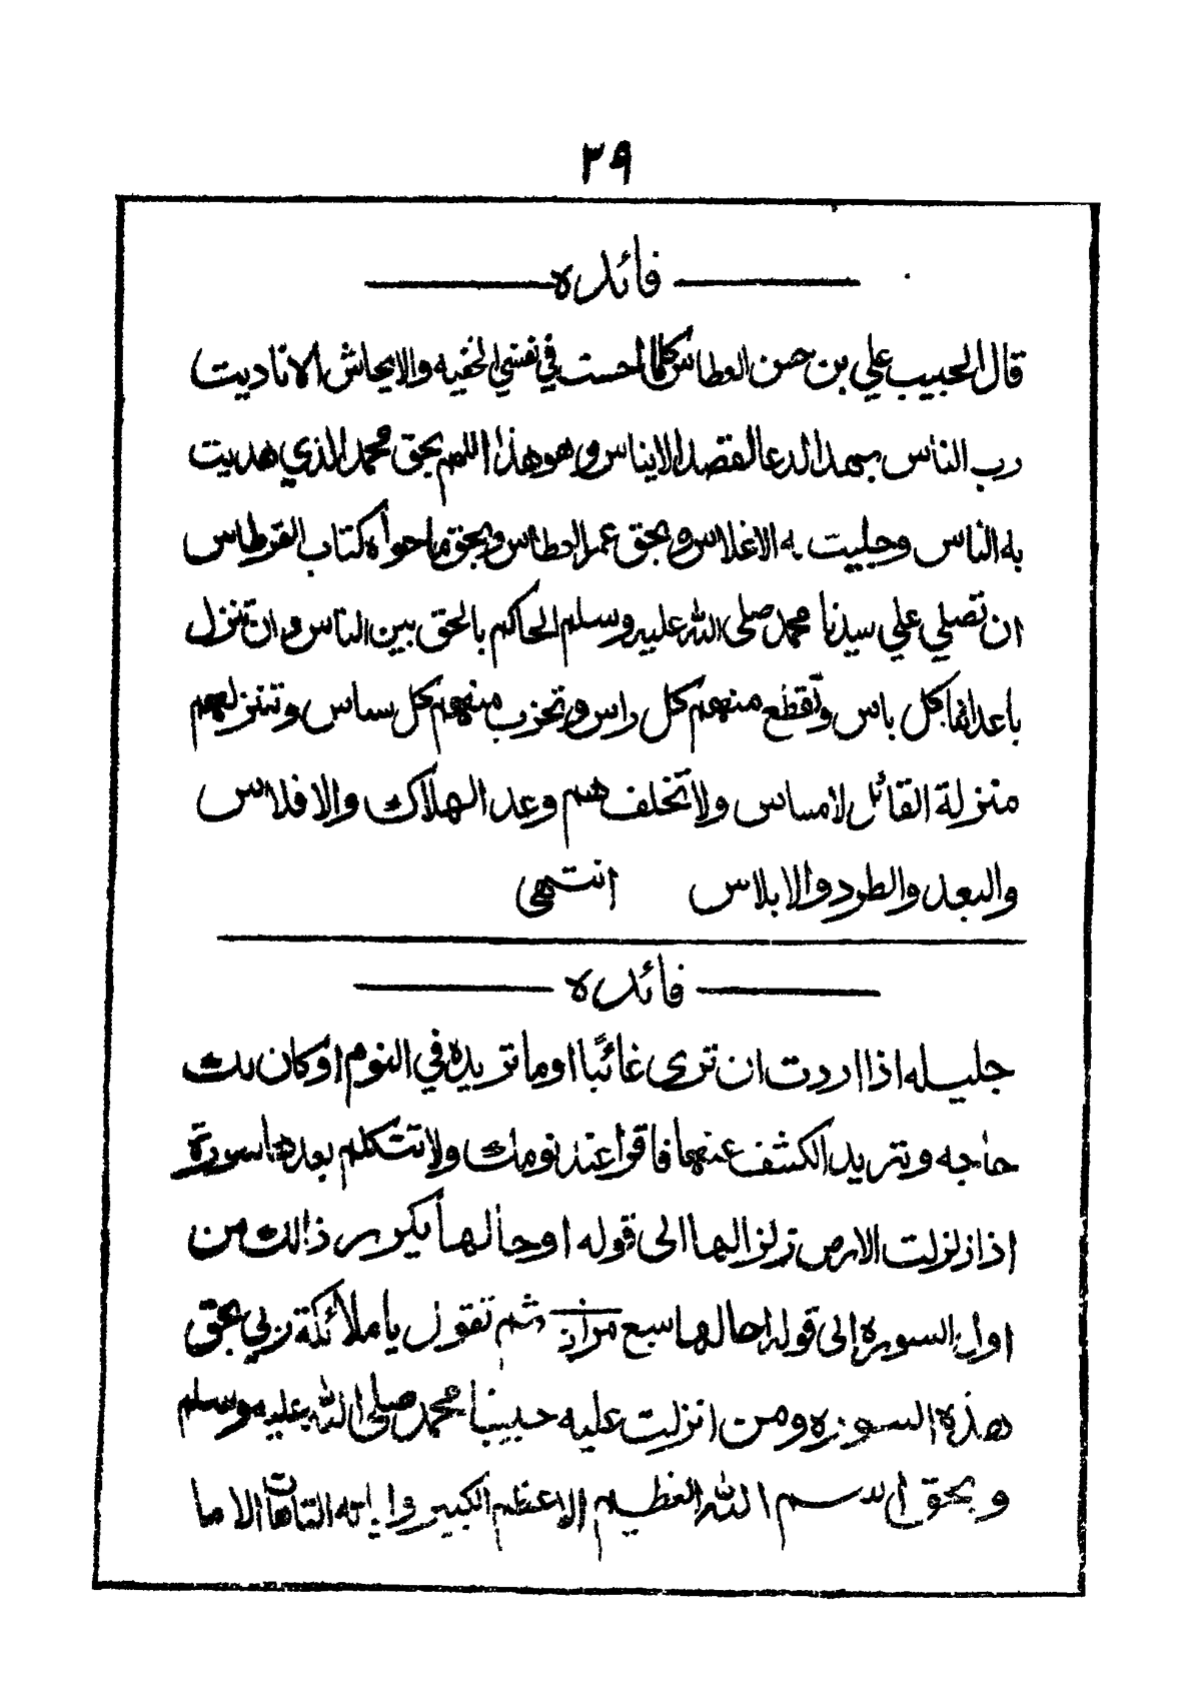 ٣٩
فائده
قال الحبيب علي بن حسن العطاس كلما احست في نفسي الخيبه والايحاش الا ناديت
رب الناس بهذا الدعا لقصد الايناس وهو هذا اللهم بحق محمد الذي هديت
به الناس وجليت به الاغلاس وبحق عمر العطاس وبحق ما حواه كتاب القرطاس
ان تصلي علي سيدنا محمد صلى الله عليه وسلم الحاكم بالحق بين الناس وان تنزل
باعدائنا كل باس وتقطع منهم كل راس وتخرب منهم كل ساس وتنزلهم
منزلة القائل لامساس ولا تخلف هم وعد الهلاك والافلاس
والبعد والطرد والابلاس انتهى
فائده
جليله اذا اردت ان ترى غائبًا او ما تريده في النوم او كان لك
حاجه وتريد الكشف عنها فاقرا عند نومك ولا تتكلم بعدها سورة
اذا زلزلت الارض زلزالها الى قوله اوحى لها يكرر ذالك من
اول السوره إلى قوله اوحى لها سبع مرات ثم تقول يا ملائكة ربي بحق
هذه السوره ومن انزلت عليه حبيبنا محمد صلى الله عليه وسلم
وبحق اسم الله العظيم الاعظم الكبير واياته التامات الا ما